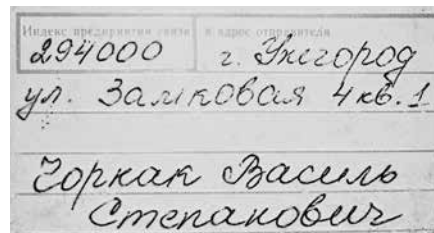 Индекс предприятия связи и адрес отправителя
294000 г. Ужгород
ул. Замковая 4 кв. 1
Чорнак Василь
Степанович